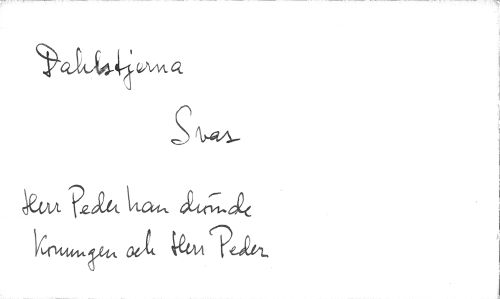 Dahlstjerna
Svas
Herr Peder han drömde
Konungen och Herr Peder